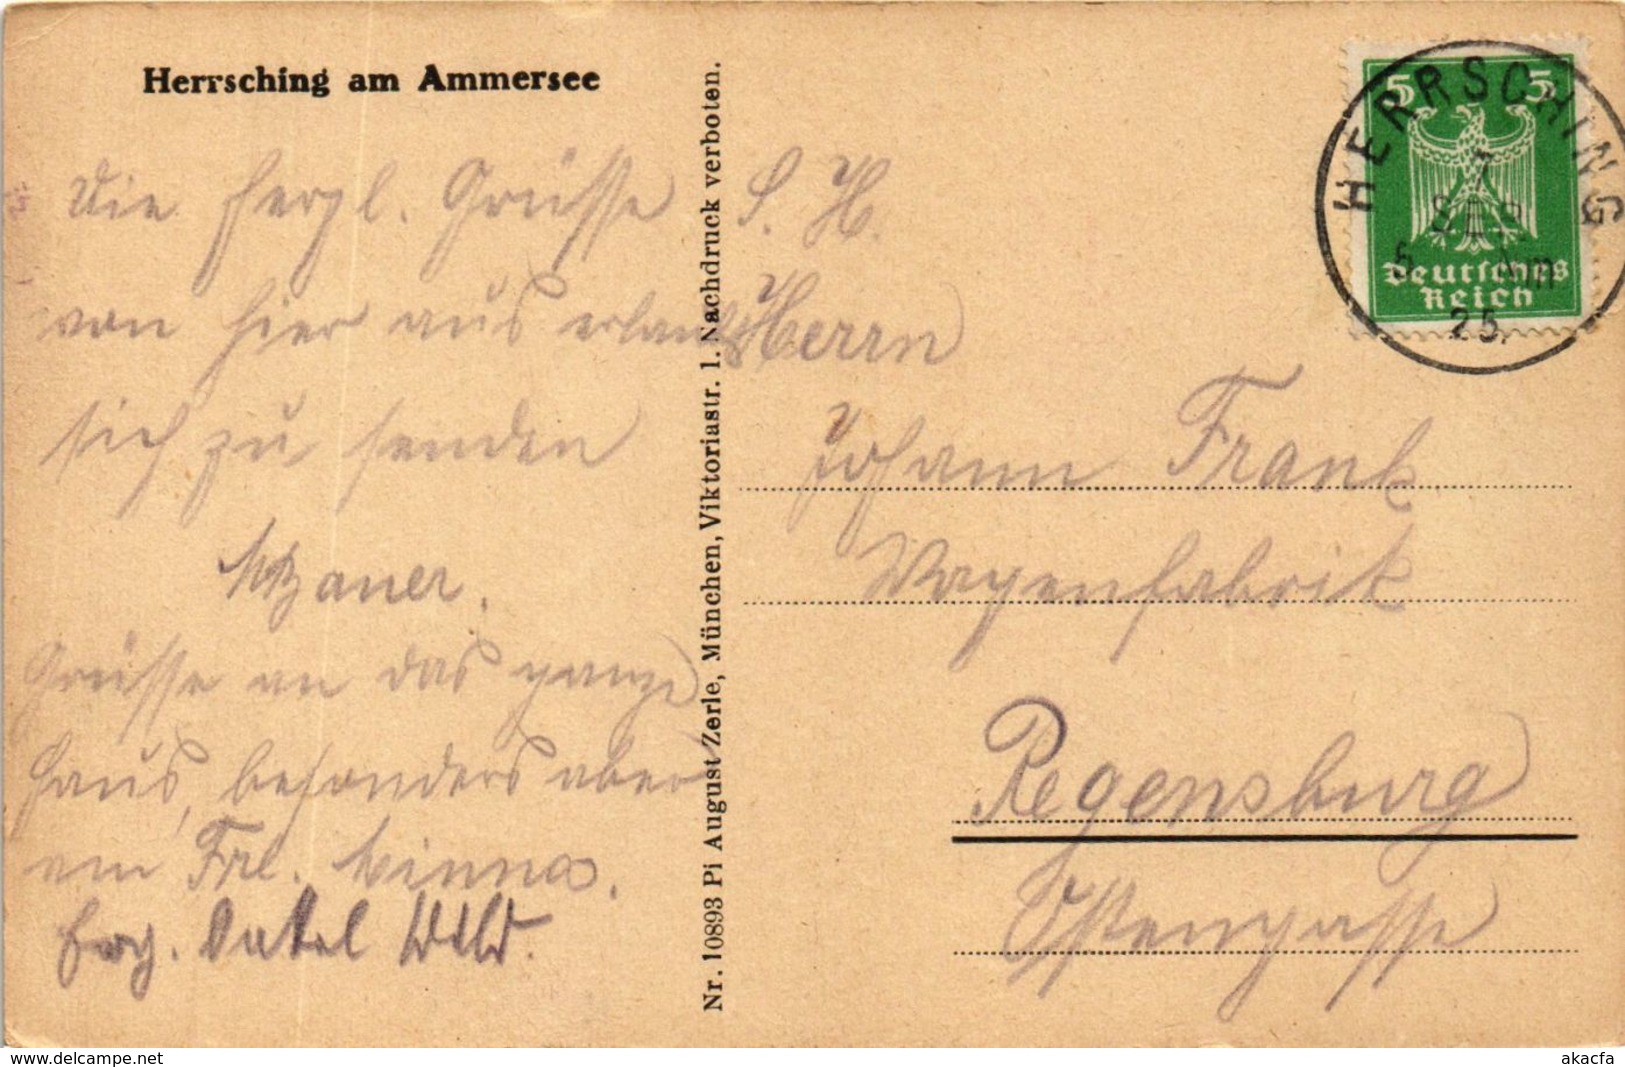 Herrsching am Ammersee
Die herzl. Grüsse
von hier aus erlaubt
sich zu senden
Grüsse an das ganze
Haus, besonders aber
an Frl. Minna.
S. H.
Herrn
Johann Frank
Wagenfabrik
Regensburg
Ostengasse
Nr. 10893 Pi August Zerle, München, Viktoriastr. 1. Nachdruck verboten.
5 5
Deutsches
Reich
HERRSCHING
7
SEP.
5 Nm
25.
www.delcampe.net
akacfa